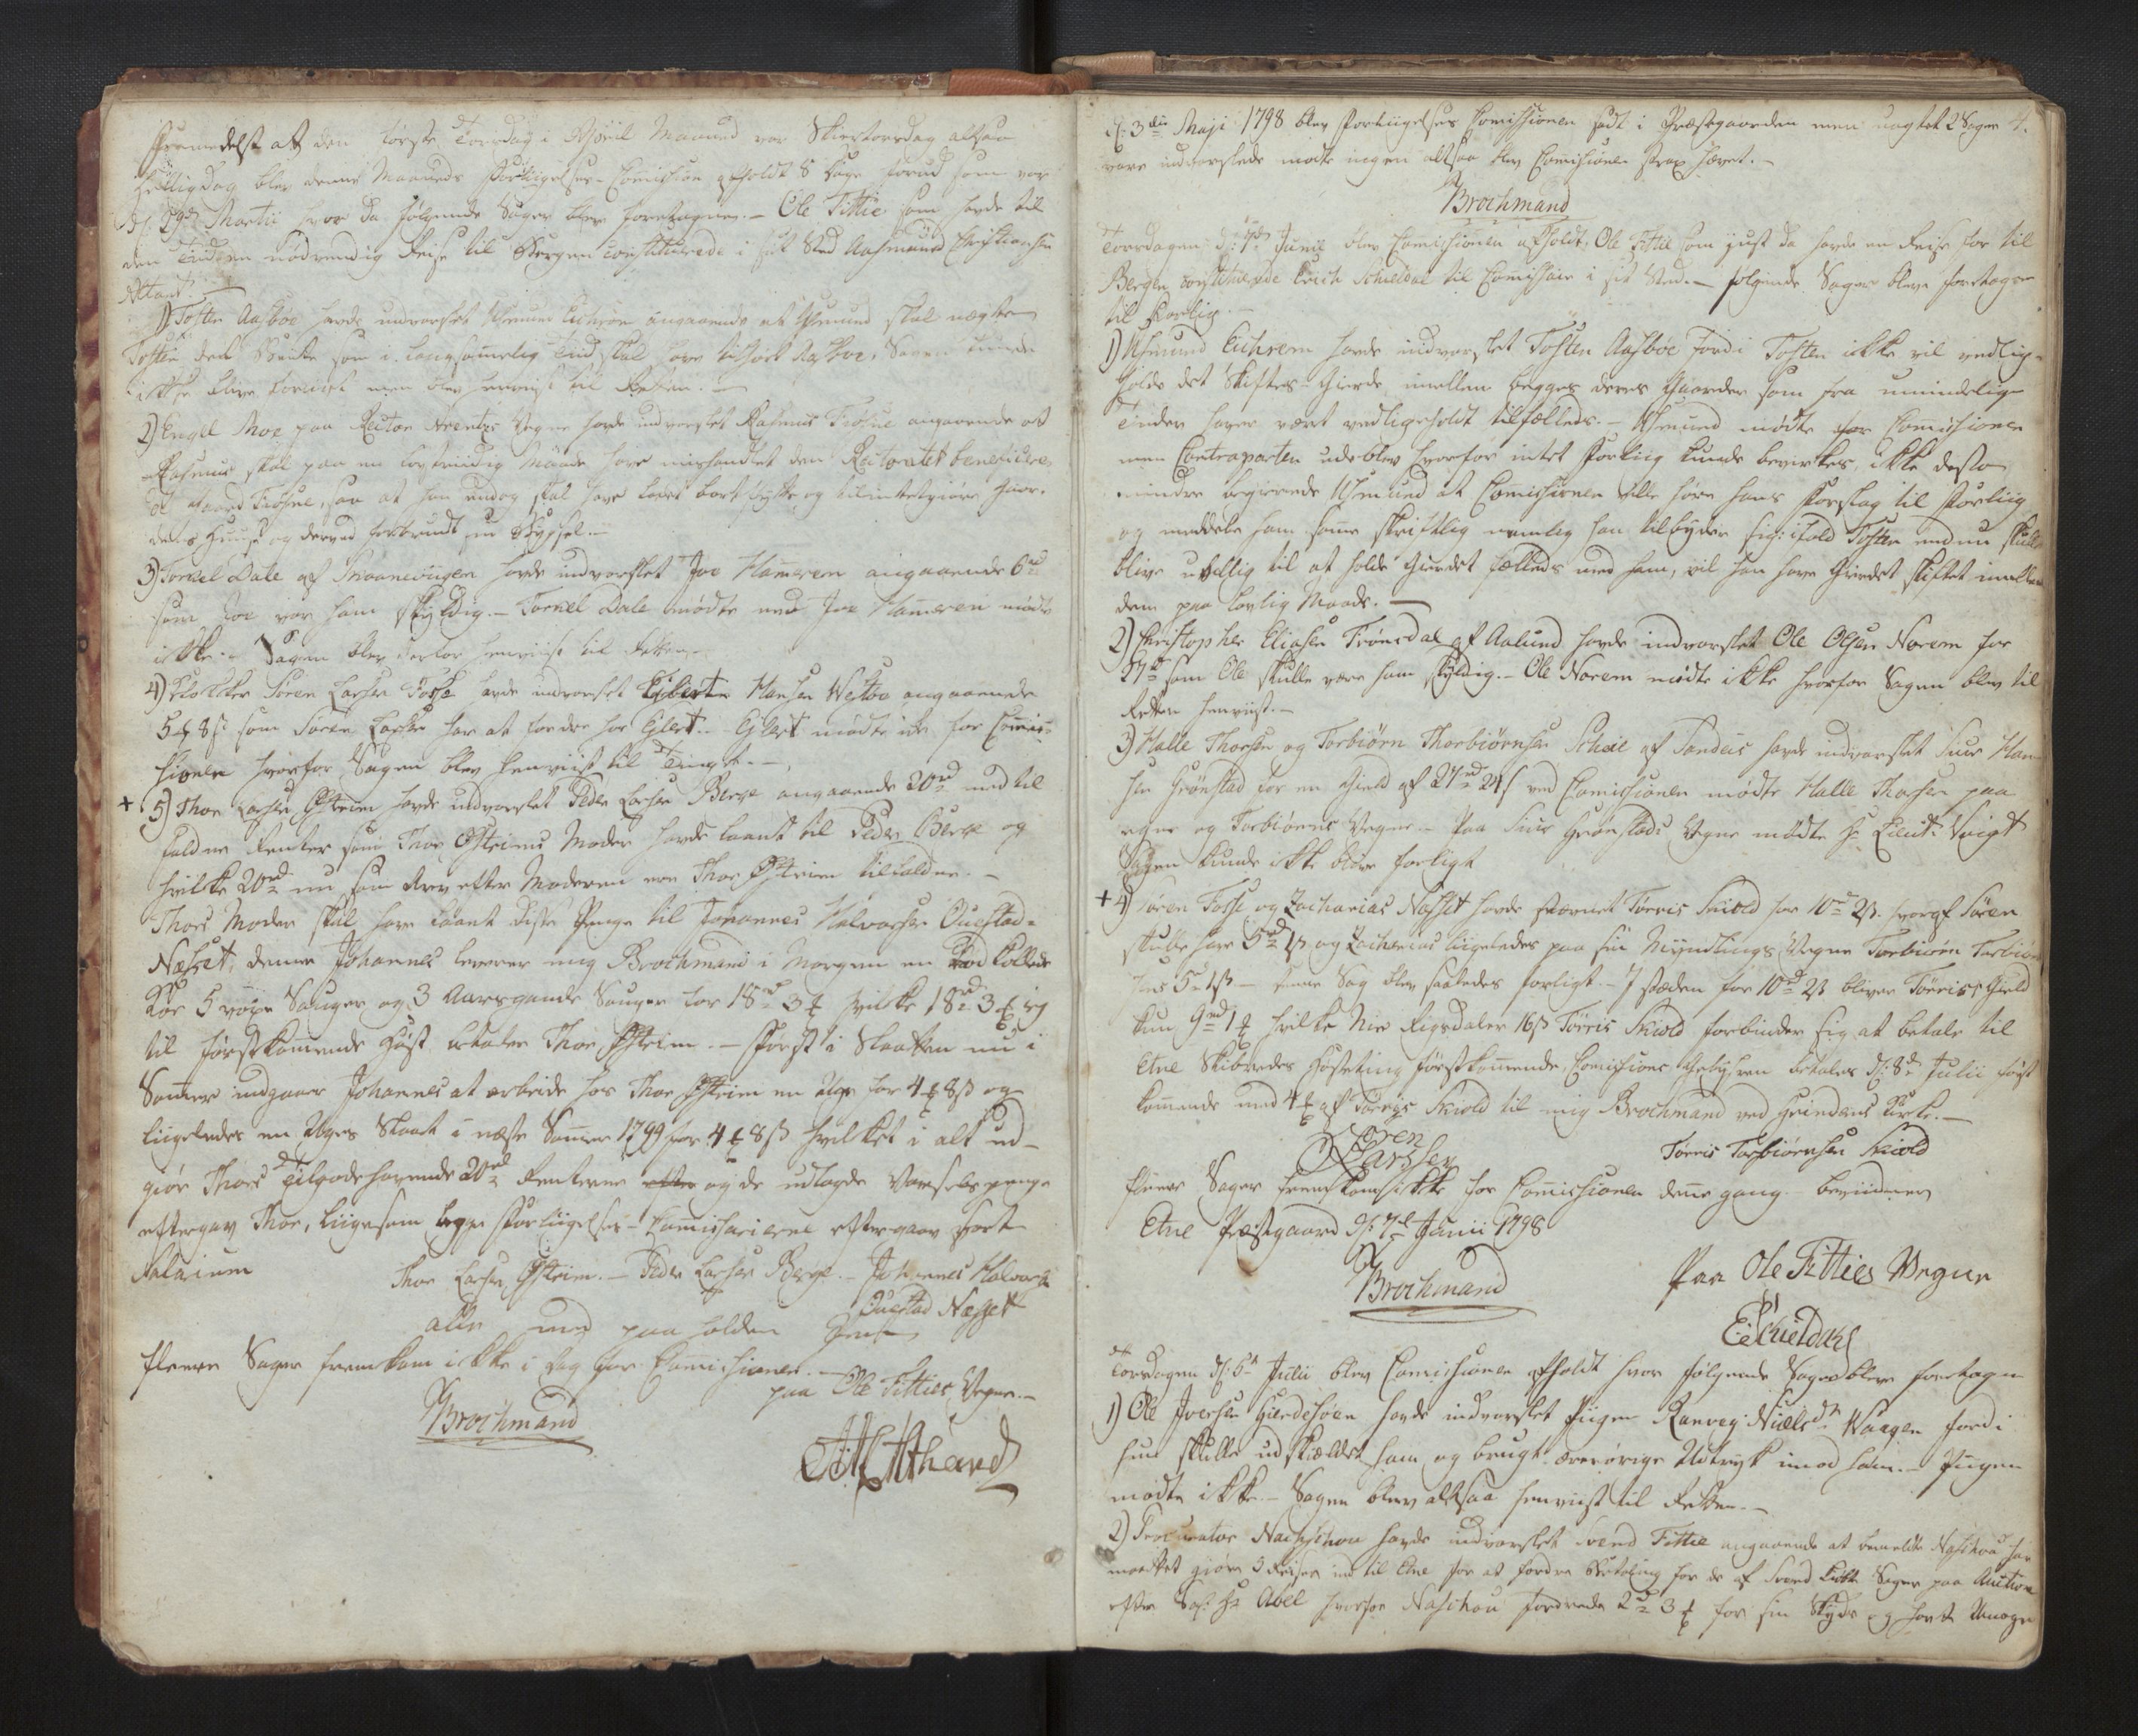 Formedelst at den første Torsdag i April Maaned var Skiertorsdag altsaa
Helligdag blev denne Maaneds Forliigelses-Comission afholdt 8 Dage forud som var
d: 29de Martii hvor da følgende Sager blev foretagne. – Ole Fittie som havde til
den Tid en nødvendig Reise til Bergen constituerede i sit Sted Aasmund Christiansen
Altand.
1) Tosten Aasboe havde indvarslet Asmund Eichrem angaaende at Asmund skal nægte
Tosten det som i langsommelig Tid skal have tilhørt Aasboe, Sagen kunde
ikke blive forligt men blev henviist til Retten. –
2) Engel Moe paa Rector Arentzes Vegne havde indvarslet Rasmus Frøsne angaaende at
Rasmus skal paa en lovstridig Maade have mishandlet den Rectoratet beneficere-
de Gaard Frøsne, saa at han endog skal have ladet bortflytte og tilintetgiøre Gaar-
dets Huuse og derved forbrudt sin Bygsel. –
3) Torkel Dale af Skaanevigen havde indvarslet Joe Hammerem angaaende 6 rd
som Joe var ham skyldig. – Torkel Dale mødte men Joe Hammeren mødte
ikke. – Sagen blev derfor henviist til Retten. –
4) Klokker Søren Larsen Fosse havde indvarslet Eylert Hansen Westboe angaaende
5 ₰ 8 ß som Søren Larsen har at fordre hos Eylert. – Eylert mødte ikke for Commis-
sionen hvorfor Sagen blev henviist til Tinget. –
+ 5) Thor Larsen Østreim havde indvarslet Peder Larsen Berge angaaende 20 rd med til-
faldne Renter som Thor Østreims Moder havde laant til Peder Berge og
hvilke 20 rd nu som Arv efter Moderen ere Thor Østreim tilfaldne. –
Thors Moder skal have laant disse Penge til Johannes Halvorsen Ouestad-
Næsset, denne Johannes leverer mig Brochmand i Morgen en Rødkollede
Koe 5 voxne Sauger og 3 Aarsgamle Sauger for 18 rd 3 ₰ hvilke 18 rd 3 ₰ jeg
til førstkommende Høst betaler Thor Østreim. – Først i Slaatten nu i
Sommer indgaar Johannes at arbeide hos Thor Østreim en Uge for 4 ₰ 8 ß og
liigeledes en Uges Slaat i næste Sommer 1799 for 4 ₰ 8 ß hvilket i alt ud-
giør Thors Tilgodehavende 20 rd Renterne efter og de udlagde Varselspenge
eftergav Thor, liigesom begge Forliigelses-Commissairerne eftergav hvert
Salarium
Thor Larsen Østreim. – Peder Larsen Berge. – Johannes Halvorsen
Ouestad Næsset
alle med paaholden Pen
Fleere Sager fremkom ikke i Dag for Commissionen. –
paa Ole Fitties Vegne. –
Brochmand
Althand
4.
d: 3die Maji 1798 blev Forliigelses Comissionen sadt i Præstegaarden men uagtet 2 Sager
vare indvarslede mødte ingen altsaa blev Comissionen strax hævet. –
Brochmand
Torsdagen d: 7de Junii blev Comissionen afholdt, Ole Fittie som just da havde en Reise for til
Bergen constituerede Erich Schieldal til Comissair i sit Sted. – følgende Sager bleve foretagne
til Forlig. –
1) Asmund Eichrem havde indvarslet Tosten Aasboe fordi Tosten ikke vil vedlige-
holde det Skiftes-Gierde imellem begges deres Gaarder som fra umindelige
Tider haver vært vedligeholdt tilfælleds. – Asmund mødte for Commissionen
men Contraparten udeblev hvorfor intet Forliig kunde bevirkes, ikke desto
mindre begierede Asmund at Commissionen ville høre hans Forslag til Forliig
og meddele ham samme skriftlig nemlig han tilbyder sig: ifald Tosten endnu skulle
blive uvillig til at holde Gierdet fælleds med ham, vil han have Gierdet skiftet imellem
dem paa lovlig Maade. –
2) Christopher Eliasen Trønsdal af Aalund havde indvarslet Ole Olsen Norem for
57 rd som Ole skulle være ham skyldig. – Ole Norem mødte ikke hvorfor Sagen blev til
Retten henviist. –
3) Halle Thorsen og Torbiørn Thorbiørnsen Scheie af Sandeid havde indvarslet Siur Han-
sen Grønstad for en Gield af 27 rd 24 ß ved Comissionen mødte Halle Thorsen paa
egne og Torbiørns Vegne. – Paa Siur Grønstads Vegne mødte Hr Lieut: Voigt
Sagen kunde ikke blive forligt
+ 4) Søren Fosse og Zacharias Næsset havde stævnet Tørris Skiold for 10 rd 2 ß. hvoraf Søren
skulle have 5 rd 1 ß og Zacharias liigeledes paa sin Myndlings Vegne Torbiørn Torbiørn-
sens 5 rd 1 ß – denne Sag blev saaledes forligt. – I stæden for 10 rd 2 ß bliver Tørrises Gield
kun 9 rd 1 ₰ hvilke Nie Rigsdaler 16 ß Tørris Skiold forbinder sig at betale til
Etne Skibredes Høsteting førstkommende, Comissions Gebyhren betales d: 8de Julii først-
kommende med 4 ₰ af Tørris Skiold til mig Brochmand ved Grindems Kirke. –
Søren
Larssen
Tørris Torbiørnsen Skiold
fleere Sager fremkom ikke for Commissionen denne gang. – bevidner
Etne Præstgaard d: 7de Junii 1798
Brochmand
Paa Ole Fitties Vegne
E: Schieldahl
Torsdagen d: 5te Julii blev Comissionen afholdt hvor følgende Sager bleve foretagne
1) Ole Iversen Hierdesøen havde indvarslet Piigen Ranveg Nielsd:r Waagen fordi
hun skulle udskieldet ham og brugt ærerørige Udtryk imod ham. – Piigen
mødte ikke. – Sagen blev altsaa henviist til Retten. –
2) Procurator Naschou havde indvarslet Svend Fittie angaaende at bemeldte Naschou har
maattet giøre 3 Reiser ind til Etne for at fordre Betaling for de af Svend Fittie Sager paa Auction
efter Sal: Hr Abel hvorfor Naschou fordrede 2 rd 3 ₰ for sin Skyds og havt Umage